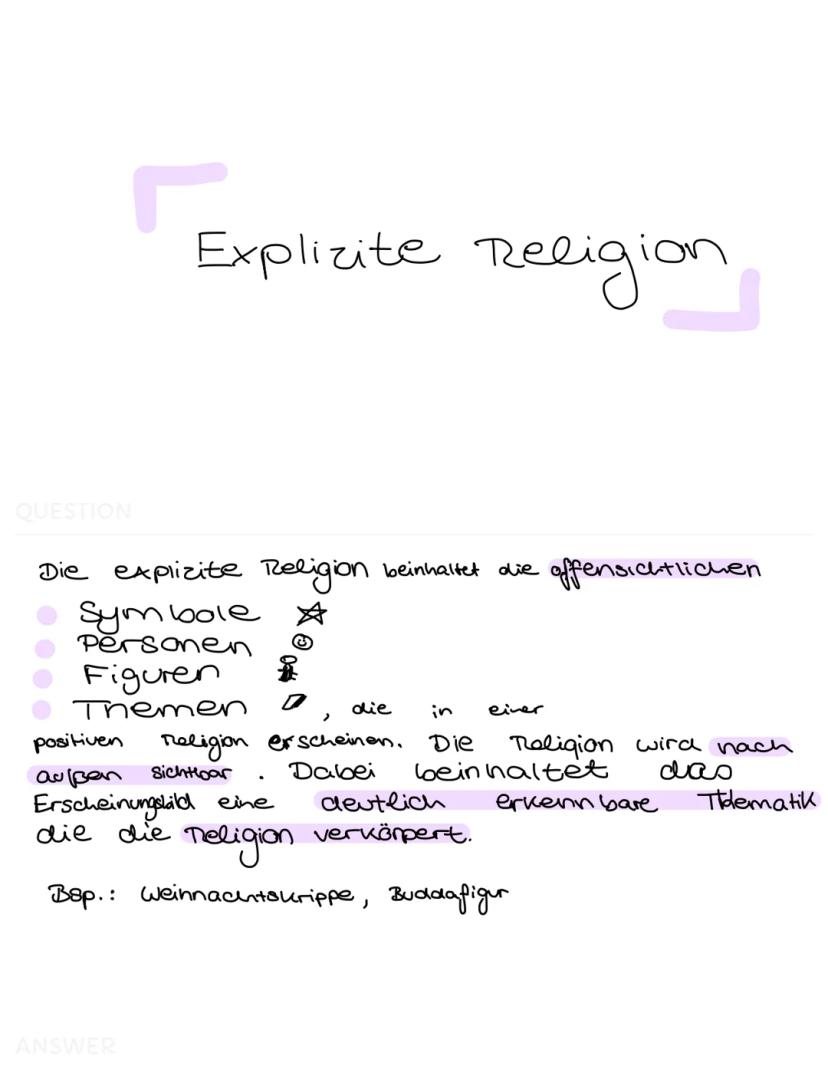 Explizite Religion
QUESTION
Die explizite Religion beinhaltet die offensichtlichen
Symbole
Personen
Figuren
Themen , die in einer
positiven Religion erscheinen. Die Religion wird nach
außen sichtbar . Dabei beinhaltet das
Erscheinungsbild eine deutlich erkennbare Thematik
die die Religion verkörpert.
Bsp.: Weihnachtskrippe, Buddafigur
ANSWER